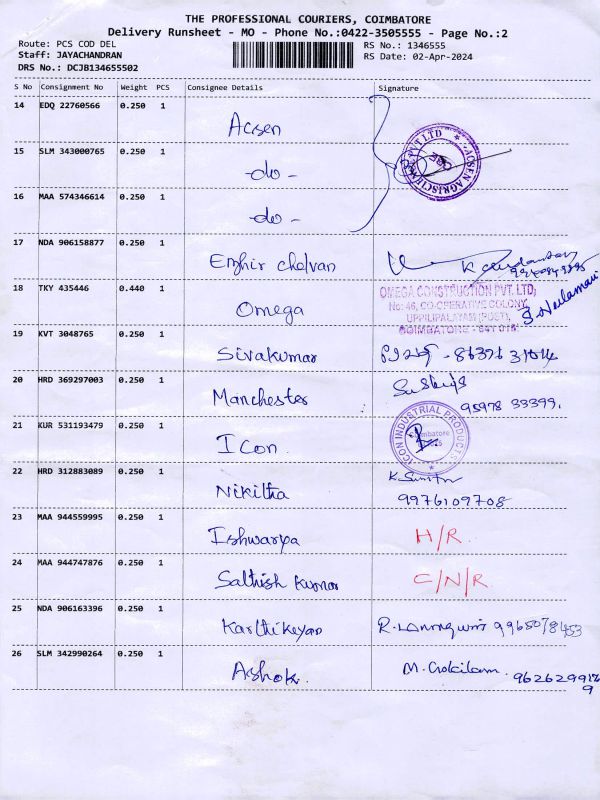 THE PROFESSIONAL COURIERS, COIMBATORE
Delivery Runsheet - MO - Phone No.:0422-3505555 - Page No.:2
Route: PCS COD DEL
RS No.: 1346555
Staff: JAYACHANDRAN
RS Date: 02-Apr-2024
DRS No.: DCJB134655502
S No Consignment No Weight PCS Consignee Details Signature
14 EDQ 22760566 0.250 1 Acsen
ACSEN AGRISCIENCE PVT LTD
15 SLM 343000765 0.250 1 -do-
16 MAA 574346614 0.250 1 -do-
17 NDA 906158877 0.250 1 Enghir Chelvan
18 TKY 435446 0.440 1 Omega
OMEGA CONSTRUCTION PVT. LTD;
No: 46, CO-OPERATIVE COLONY,
UPPILIPALAYAM (POST),
COIMBATORE - 641 015.
19 KVT 3048765 0.250 1 Sivakumar
20 HRD 369297003 0.250 1 Manchester
95978 33399.
21 KUR 531193479 0.250 1 Icon
ICON INDUSTRIAL PRODUCTS
Coimbatore
22 HRD 312883089 0.250 1 Nikitha
9976109708
23 MAA 944559995 0.250 1 Ishwarya H/R.
24 MAA 944747876 0.250 1 Sathish Kumar C/N/R.
25 NDA 906163396 0.250 1 Karthikeyan
26 SLM 342990264 0.250 1 Ashok. M. Gokilam.